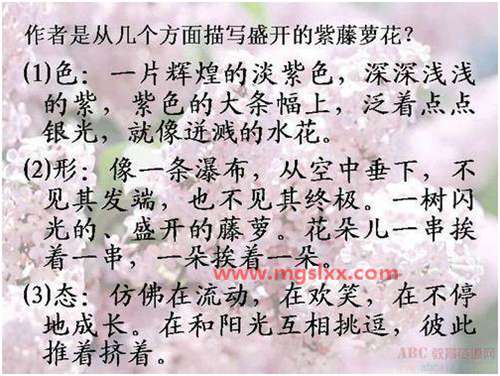 作者是从几个方面描写盛开的紫藤萝花？
(1)色：一片辉煌的淡紫色，深深浅浅
的紫，紫色的大条幅上，泛着点点
银光，就像迸溅的水花。
(2)形：像一条瀑布，从空中垂下，不
见其发端，也不见其终极。一树闪
光的、盛开的藤萝。花朵儿一串挨
着一串，一朵挨着一朵。
www.mgslxx.com
(3)态：仿佛在流动，在欢笑，在不停
地成长。在和阳光互相挑逗，彼此
推着挤着。
ABC 教育资源网